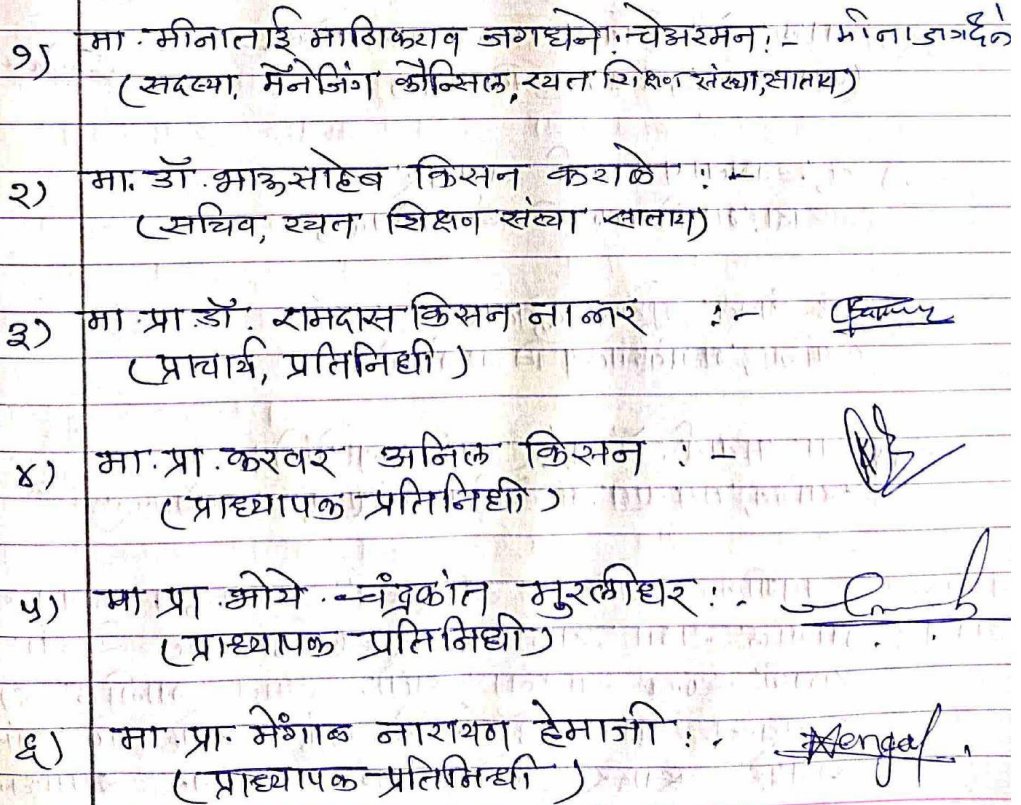 १) मा. मीनाताई माणिकराव जगधने. चेअरमन :- मीना जगधने
(सदस्या, मॅनेजिंग कौन्सिल, रयत शिक्षण संस्था, सातारा)
२) मा. डॉ. भाऊसाहेब किसन कराळे :-
(सचिव, रयत शिक्षण संस्था सातारा)
३) मा. प्रा. डॉ. रामदास किसन नालर :-
(प्राचार्य, प्रतिनिधी)
४) मा. प्रा. करवर अनिल किसन :-
(प्राध्यापक प्रतिनिधी)
५) मा. प्रा. भोये चंद्रकांत मुरलीधर :-
(प्राध्यापक प्रतिनिधी)
६) मा. प्रा. मेंगाळ नारायण हेमाजी :- Mengal
(प्राध्यापक प्रतिनिधी)